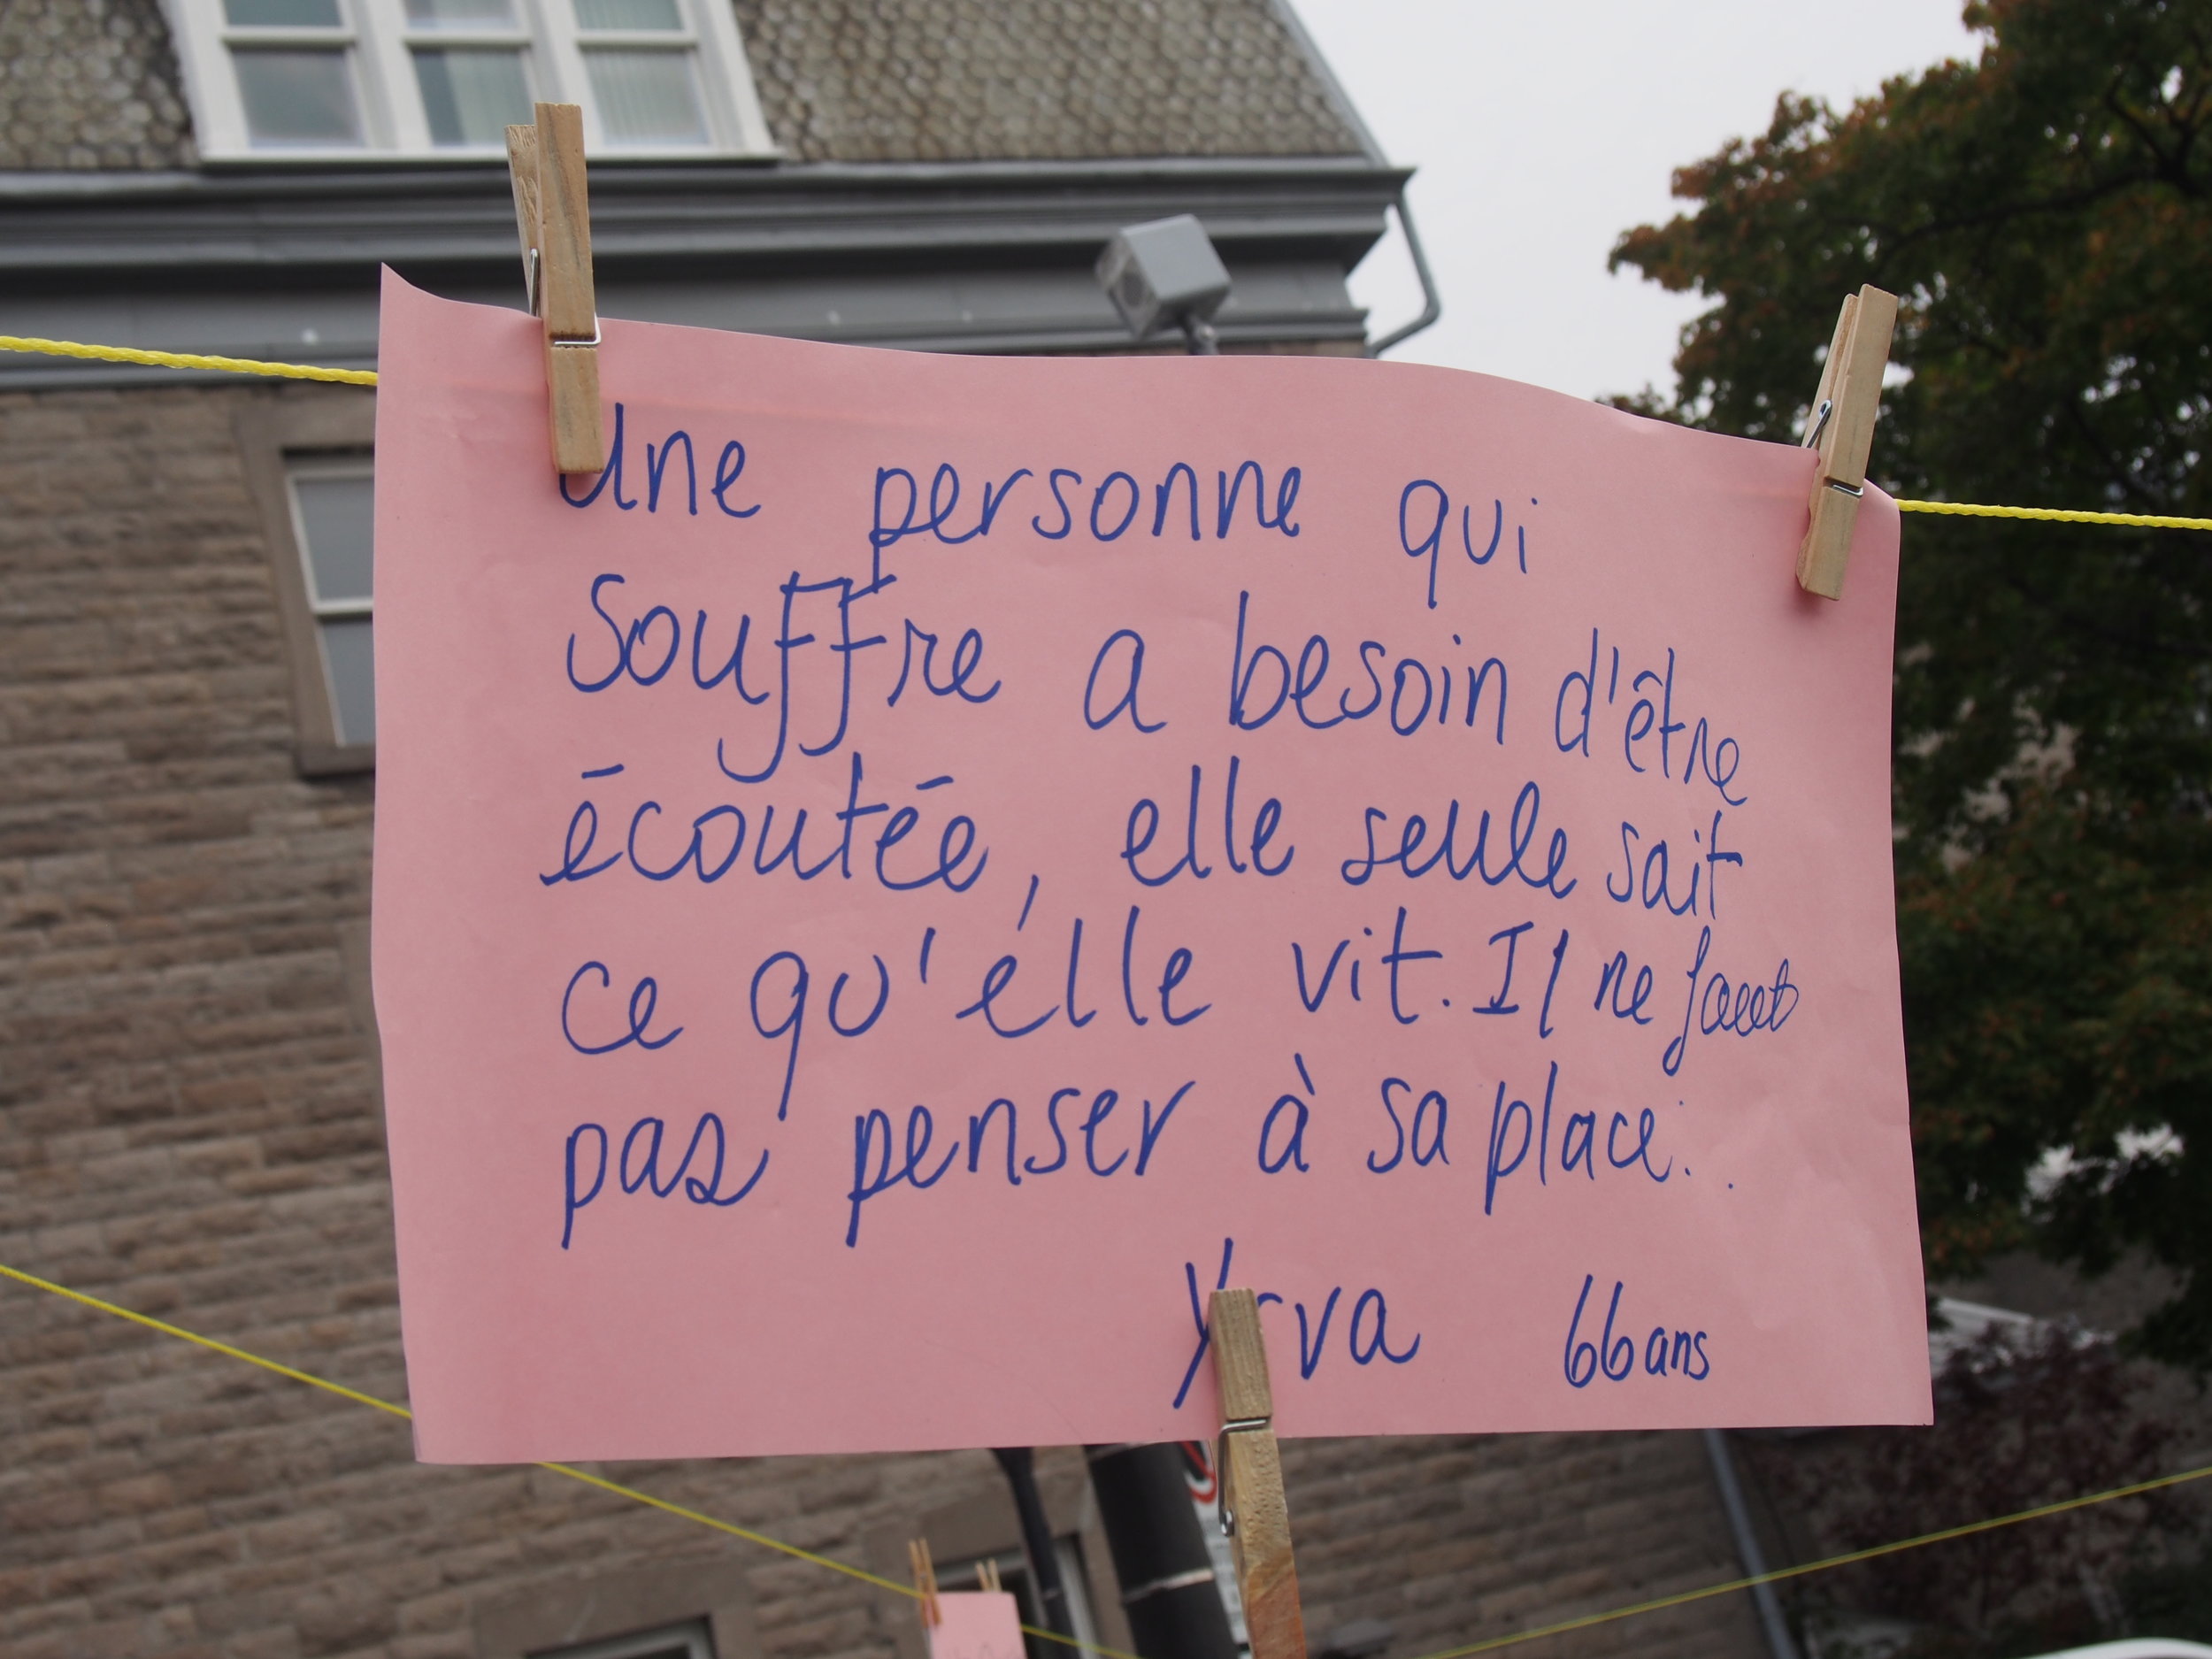 Une personne qui
souffre a besoin d'être
écoutée, elle seule sait
ce qu'elle vit. Il ne faut
pas penser à sa place..
66 ans